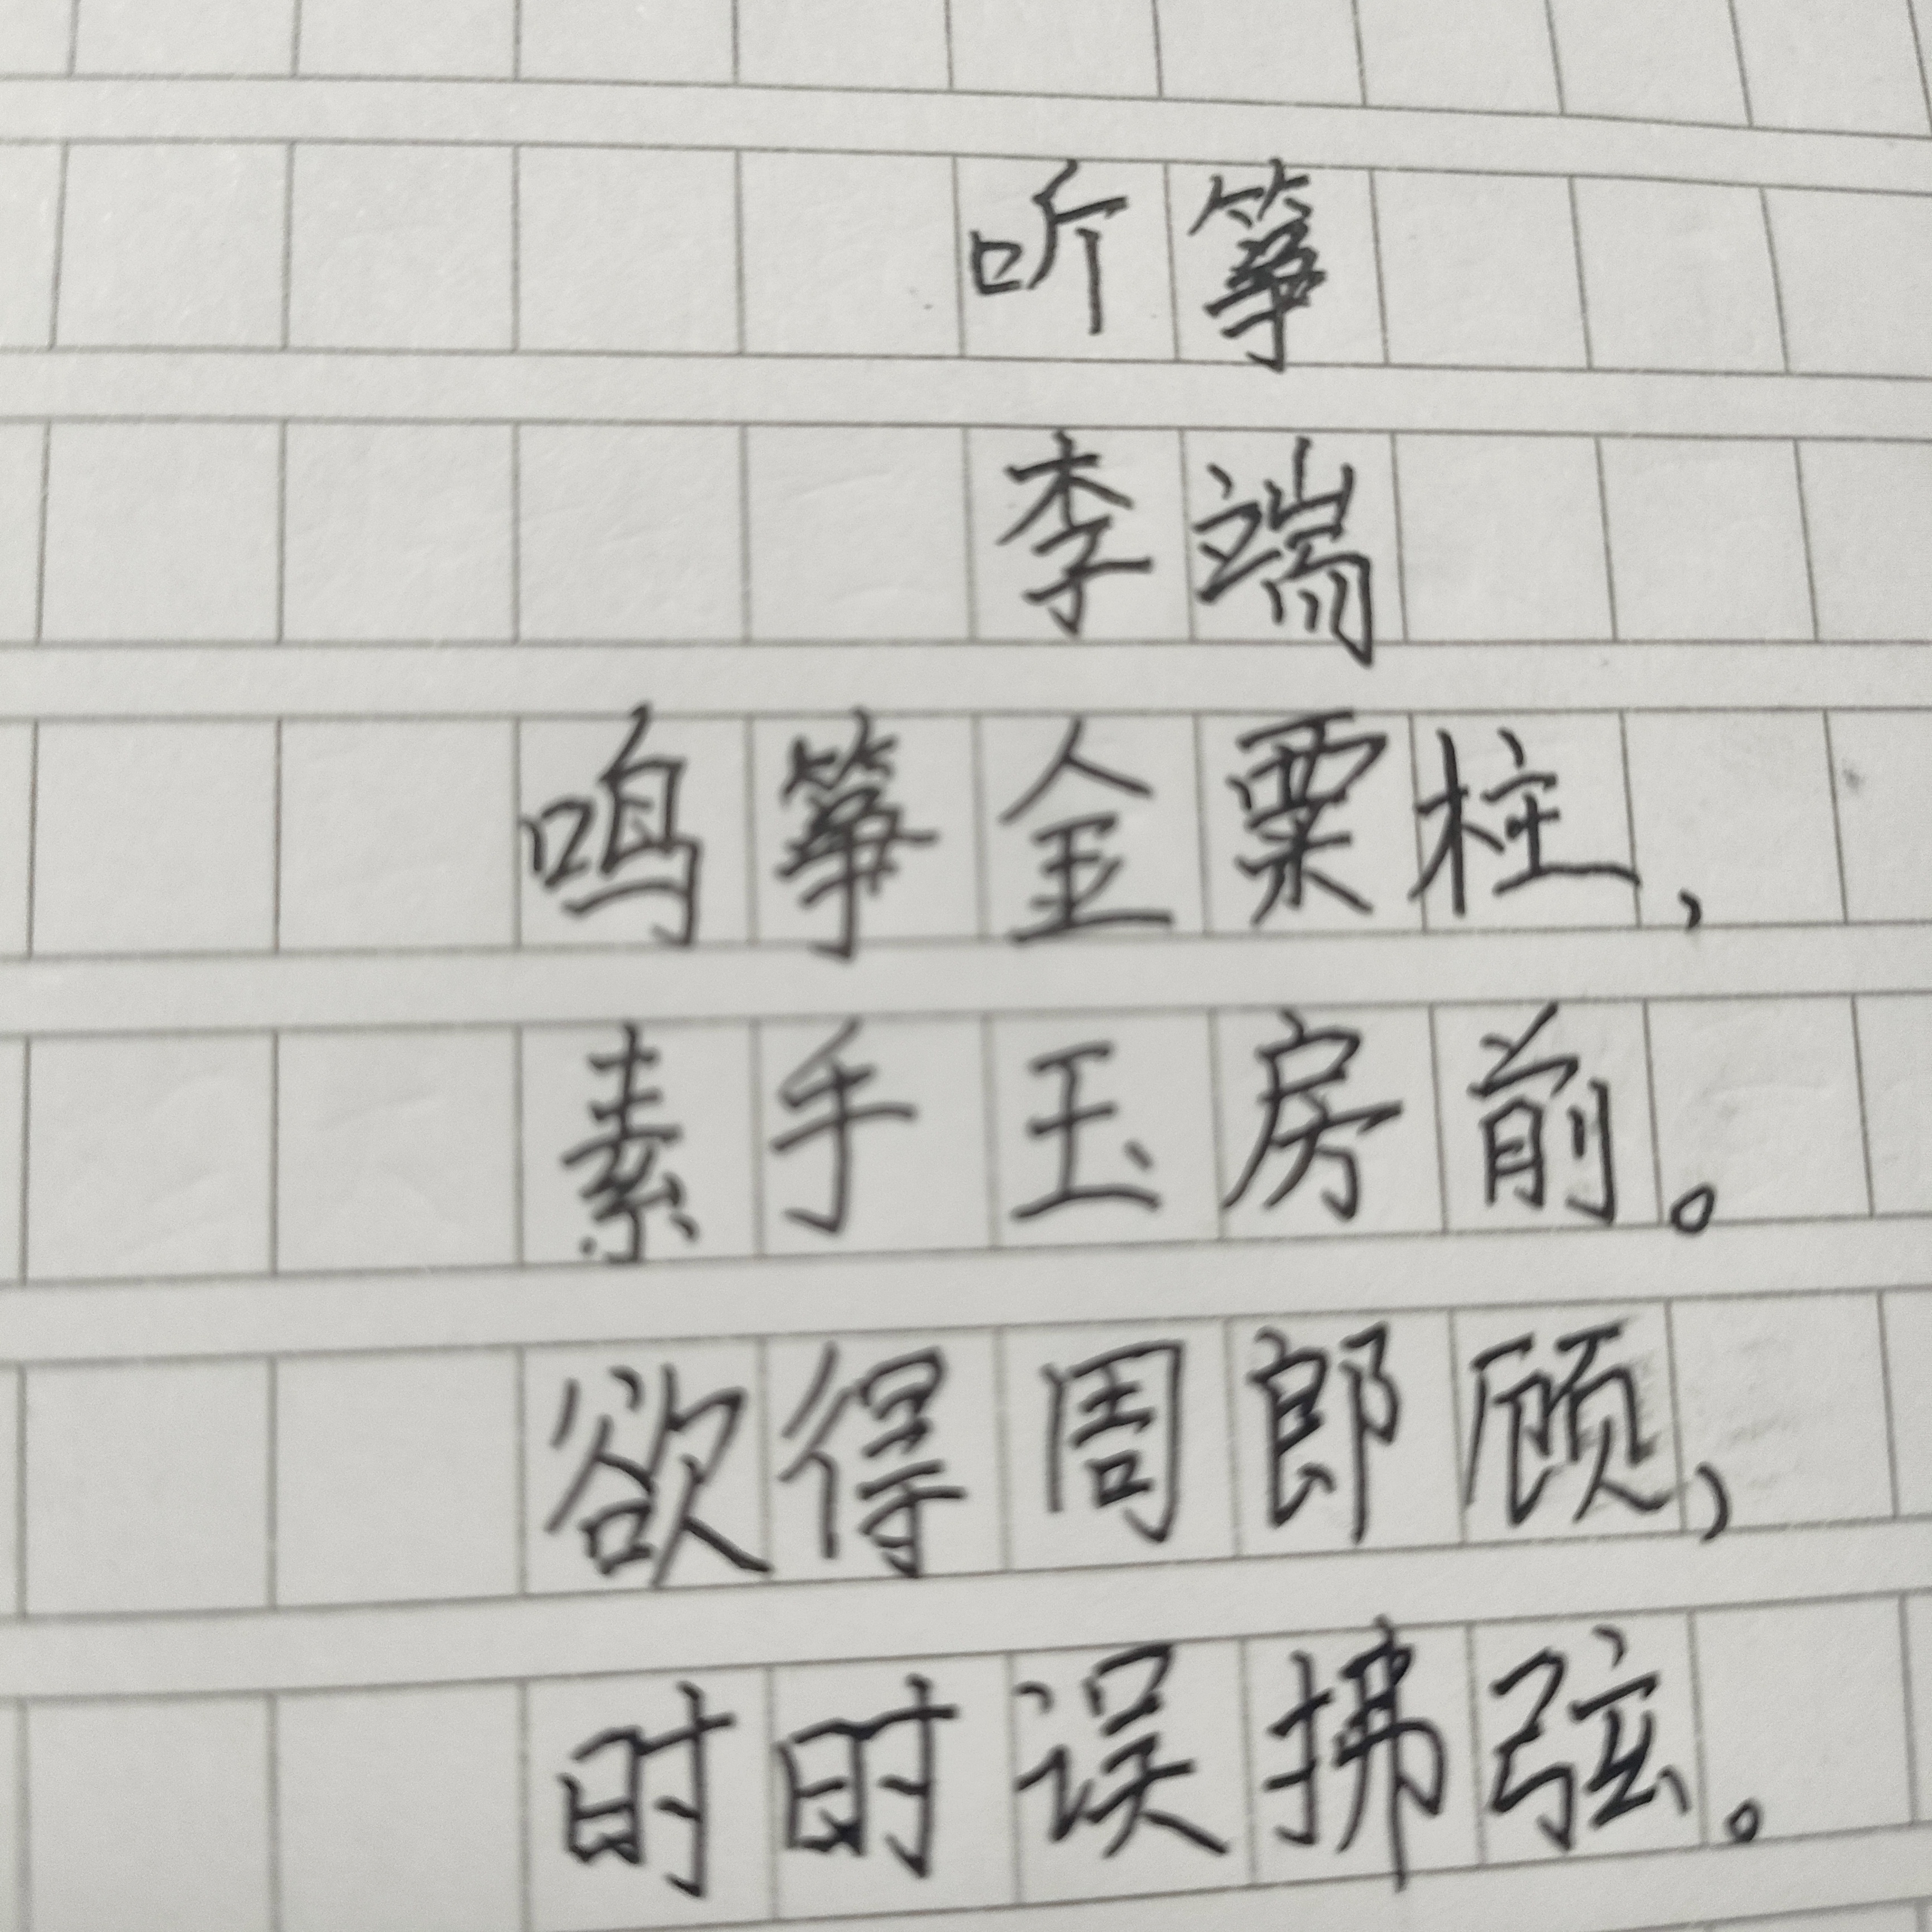 听筝
李端
鸣筝金粟柱，
素手玉房前。
欲得周郎顾，
时时误拂弦。